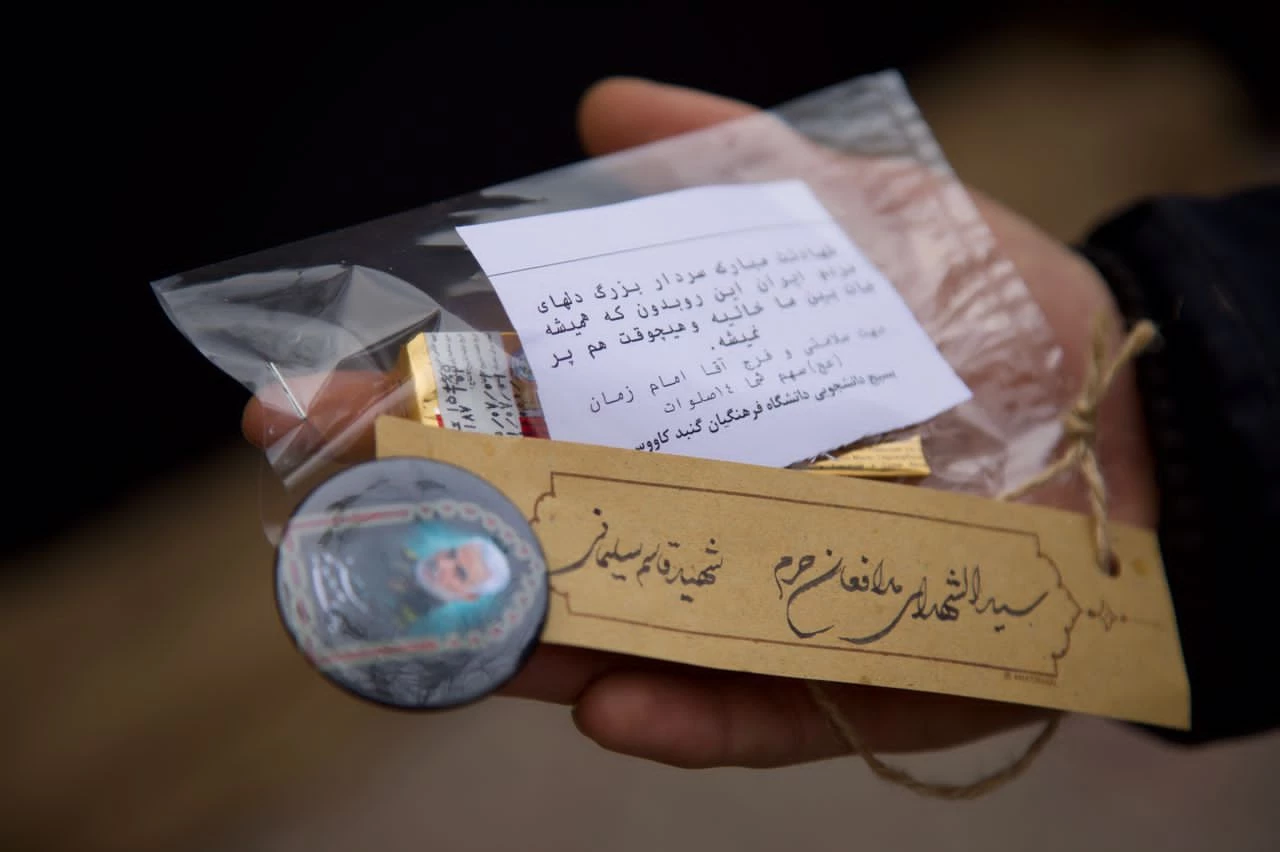 شهادتت مبارک سردار بزرگ دلهای
مردم ایران این روبدون که همیشه
جات بین ما خالیه وهیچوقت هم پر
نمیشه.
جهت سلامتی و فرج آقا امام زمان
(عج)سهم شما ١٤صلوات
بسیج دانشجویی دانشگاه فرهنگیان گنبد کاووس
سیدالشهدای مدافعان حرم شهید قاسم سلیمانی